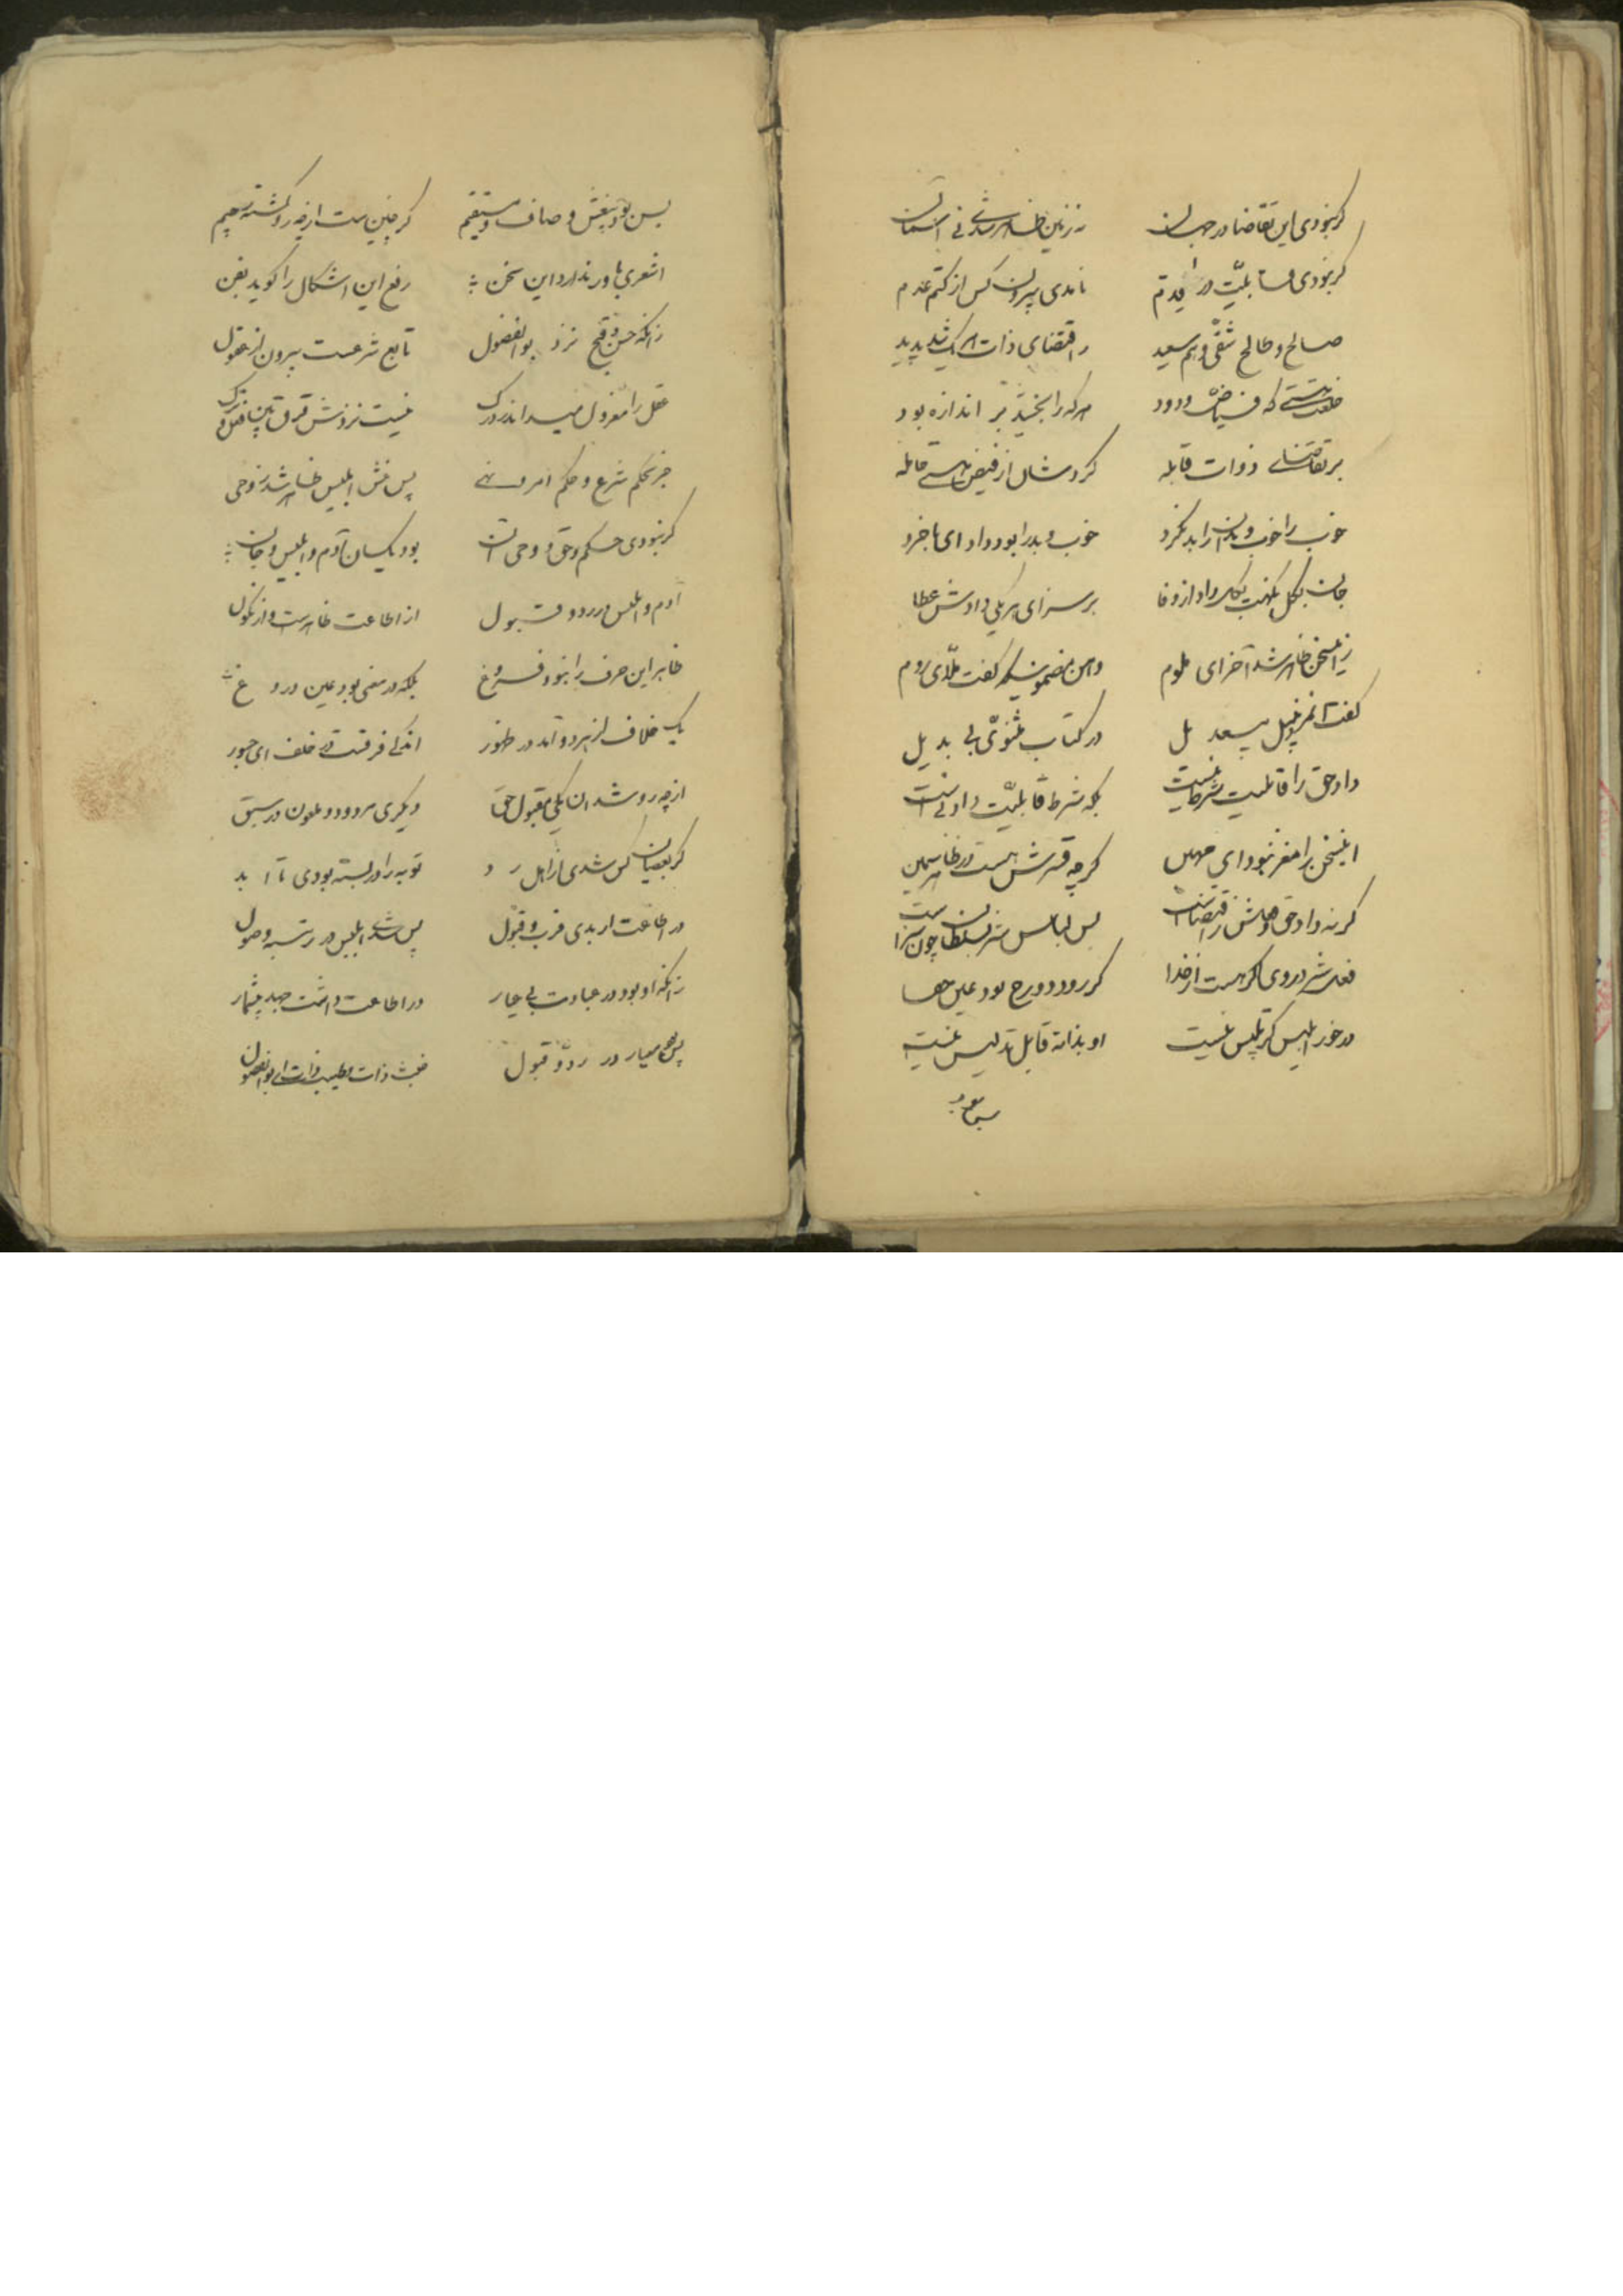 گر نبودی این تقاضا در جهان نه زمین ظاهر شدی نی آسمان
گر نبودی قابلیّت در قدم نامدی بیرون کس از کتم عدم
صالح و طالح شقی و هم سعید ز اقتضای ذات هر یک شد پدید
خلعت هستی که فیاض ودود هر که را بخشید بر اندازه بود
بر تقاضای ذوات قابله کردشان از فیض هستی حامله
خوب را خوب و بدان را بد نکرد خوب و بد را بود داد ای با خرد
جان بگل نکهت بگل داد از وفا بر سزای هر یکی دادش عطا
زین سخن ظاهر شد آخر ای ظلوم این مضمون که گفت ملّای روم
گفت آنمرد در کتاب مثنوی بی بدیل
داد حق را قابلیت شرط نیست بلکه شرط قابلیّت داد اوست
این سخن را مغز نبود ای مهین گرچه قشرش هست در ظاهر سمین
گر نه داد حق ز اقتضاست پس لباس سلطان چون سزاست
از خدا گر بود عین
در خور ابلیس گر تلبیس نیست او بذاته قابل تدلیس نیست
پس
پس بود بیغش و صاف و مستقیم گر چنین است از چه رو گشته رجیم
اشعری باور ندارد این سخن رفع این اشکال را گوید بفن
زانکه حسن و قبح نزد بوالفضول تابع شرعست بیرون از عقول
عقل را معزول میداند ز درک نیست نزدش فرق بین فعل و ترک
جز بحکم شرع و حکم امر و نهی پس غش ابلیس ظاهر شد ز وحی
گر نبودی حکم حق و وحی آن بود یکسان آدم و ابلیس و جان
آدم و ابلیس در رد و قبول از اطاعت ظاهر است و از نکول
ظاهر این حرف را نبود فروغ بلکه در معنی بود عین دروغ
یک خلاف از هر دو آمد در ظهور اندکی فرقست در خلف ای جسور
از چه رو شد آن یکی مقبول حق دیگری مردود و ملعون در سبق
گر بعصیان کس شدی ز اهل رد توبه را در بسته بودی تا ابد
در اطاعت ار بدی قرب و قبول پس شدی ابلیس در رتبه وصول
زانکه او بود در عبادت بی عیار در اطاعت داشت جهد بیشمار
پس معیار در ردّ و قبول خبث ذات و طیب ذات ای بوالفضول